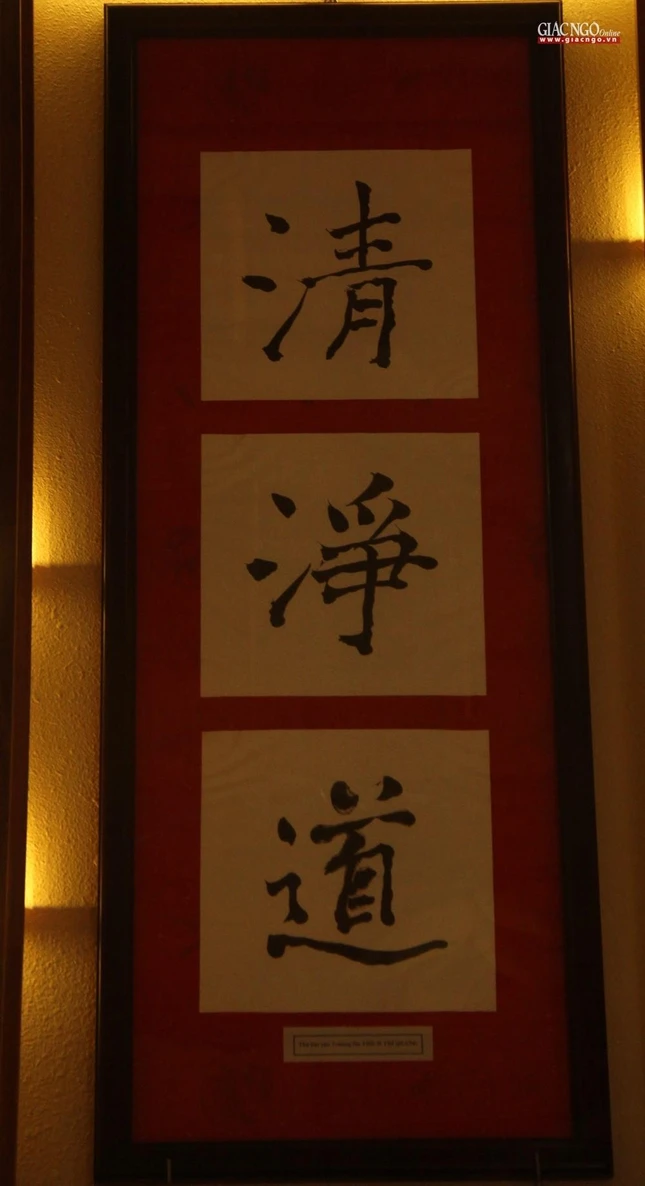 GIACNGO Online
www.giacngo.vn
清
淨
道